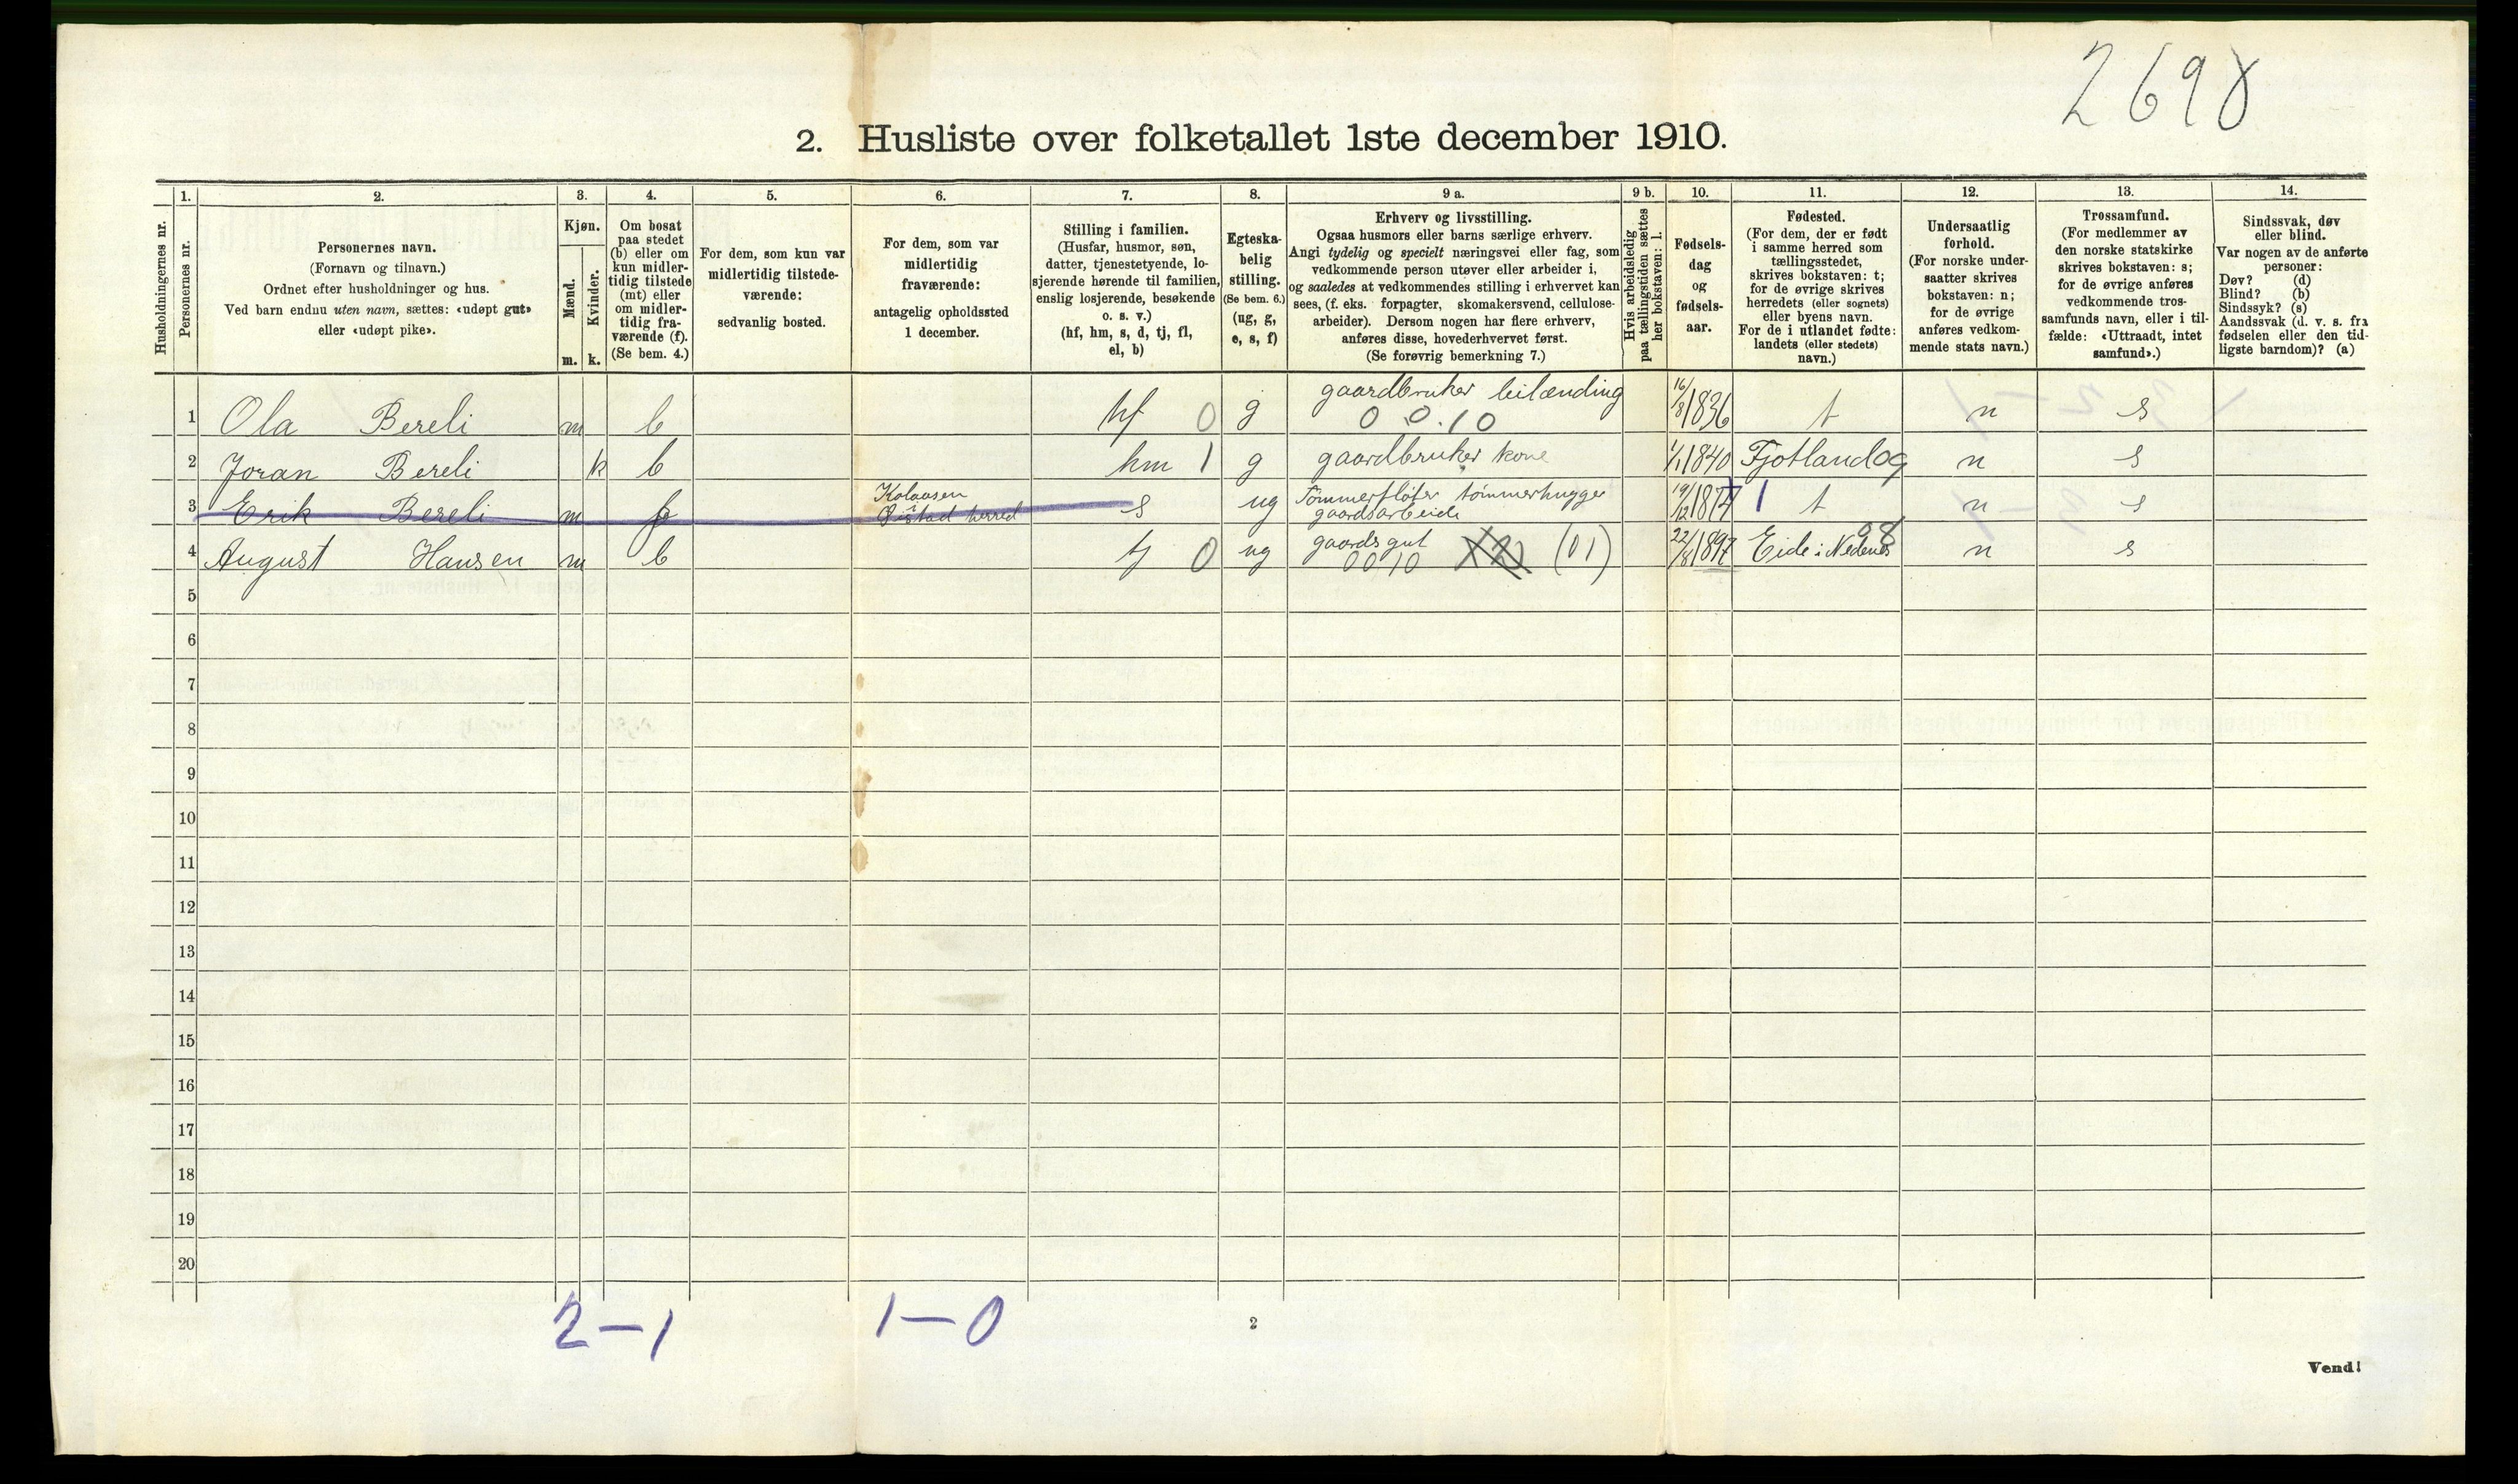 2698
2. Husliste over folketallet 1ste december 1910.
Husholdningernes nr.
1.
Personernes nr.
2.
Personernes navn.
(Fornavn og tilnavn.)
Ordnet efter husholdninger og hus.
Ved barn endnu uten navn, sættes: «udøpt gut»
eller «udøpt pike».
3.
Kjøn.
Mænd.
Kvinder.
m. k.
4.
Om bosat
paa stedet
(b) eller om
kun midler-
tidig tilstede
(mt) eller
om midler-
tidig fra-
værende (f).
(Se bem. 4.)
5.
For dem, som kun var
midlertidig tilstede-
værende:
sedvanlig bosted.
6.
For dem, som var
midlertidig
fraværende:
antagelig opholdssted
1 december.
7.
Stilling i familien.
(Husfar, husmor, søn,
datter, tjenestetyende, lo-
sjerende hørende til familien,
enslig losjerende, besøkende
o. s. v.)
(hf, hm, s, d, tj, fl,
el, b)
8.
Egteska-
belig
stilling.
(Se bem. 6.)
(ug, g,
e, s, f)
9 a.
Erhverv og livsstilling.
Ogsaa husmors eller barns særlige erhverv.
Angi tydelig og specielt næringsvei eller fag, som
vedkommende person utøver eller arbeider i,
og saaledes at vedkommendes stilling i erhvervet kan
sees, (f. eks. forpagter, skomakersvend, cellulose-
arbeider). Dersom nogen har flere erhverv,
anføres disse, hovederhvervet først.
(Se forøvrig bemerkning 7.)
9 b.
Hvis arbeidsledig
paa tællingstiden sættes
her bokstaven: l.
10.
Fødsels-
dag
og
fødsels-
aar.
11.
Fødested.
(For dem, der er født
i samme herred som
tællingsstedet,
skrives bokstaven: t;
for de øvrige skrives
herredets (eller sognets)
eller byens navn.
For de i utlandet fødte:
landets (eller stedets)
navn.)
12.
Undersaatlig
forhold.
(For norske under-
saatter skrives
bokstaven: n;
for de øvrige
anføres vedkom-
mende stats navn.)
13.
Trossamfund.
(For medlemmer av
den norske statskirke
skrives bokstaven: s;
for de øvrige anføres
vedkommende tros-
samfunds navn, eller i til-
fælde: «Uttraadt, intet
samfund».)
14.
Sindssvak, døv
eller blind.
Var nogen av de anførte
personer:
Døv? (d)
Blind? (b)
Sindssyk? (s)
Aandssvak (d. v. s. fra
fødselen eller den tid-
ligste barndom)? (a)
1 Ola Bereli m b hf 0 g gaardbruker leilænding 0 0.10 16/8 1836 t n s
2 Joran Bereli k b hm 1 g gaardbruker kone 1/1 1840 Fjotland 09 n s
3 Erik Bereli m f herred s ug Tømmerfløter tømmerhugger gaardsarbeide 19/12 1877 1 t n s
4 August Hansen m b tj 0 ug gaardsgut 0010 X2) (01) 22/8 1897 Eide i Nedenes 08 n s
5
6
7
8
9
10
11
12
13
14
15
16
17
18
19
20
2—1 1—0
2
Vend!